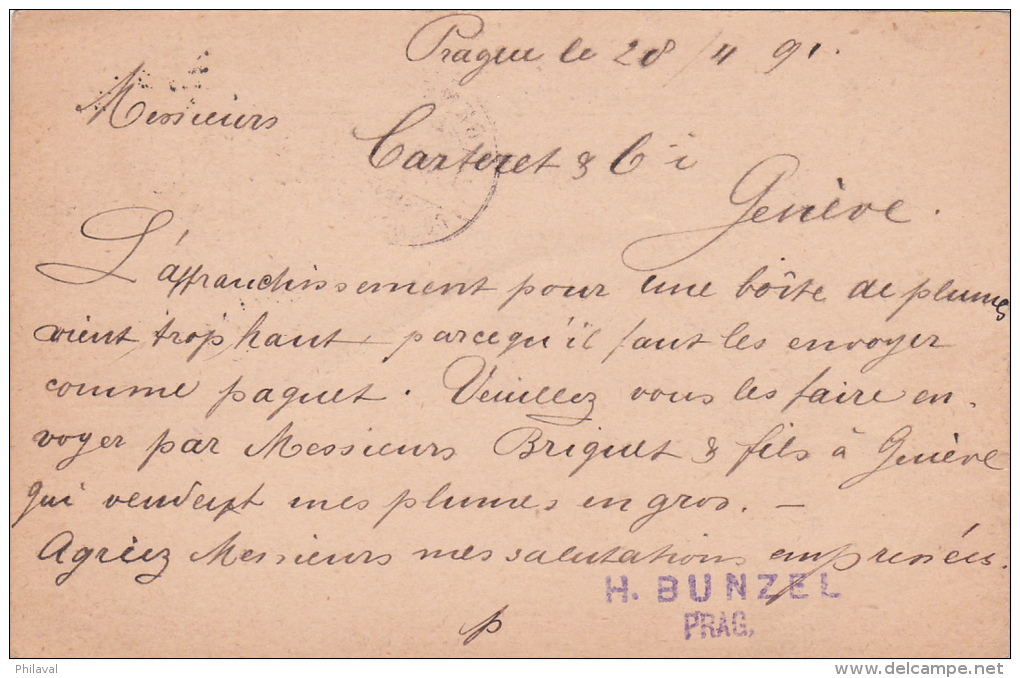 Prague le 28/4 91.
Messieurs
Carteret & Cⁱᵉ
Genève.
L'affranchissement pour une boîte de plumes
vient trop haut, parcequ'il faut les envoyer
comme paquet. Veuillez vous les faire en-
voyer par Messieurs Briquet & fils à Genève
qui vendent mes plumes en gros. —
Agréez Messieurs mes salutations empressées.
H. BUNZEL
PRAG,
p
Philaval
delcampe.net